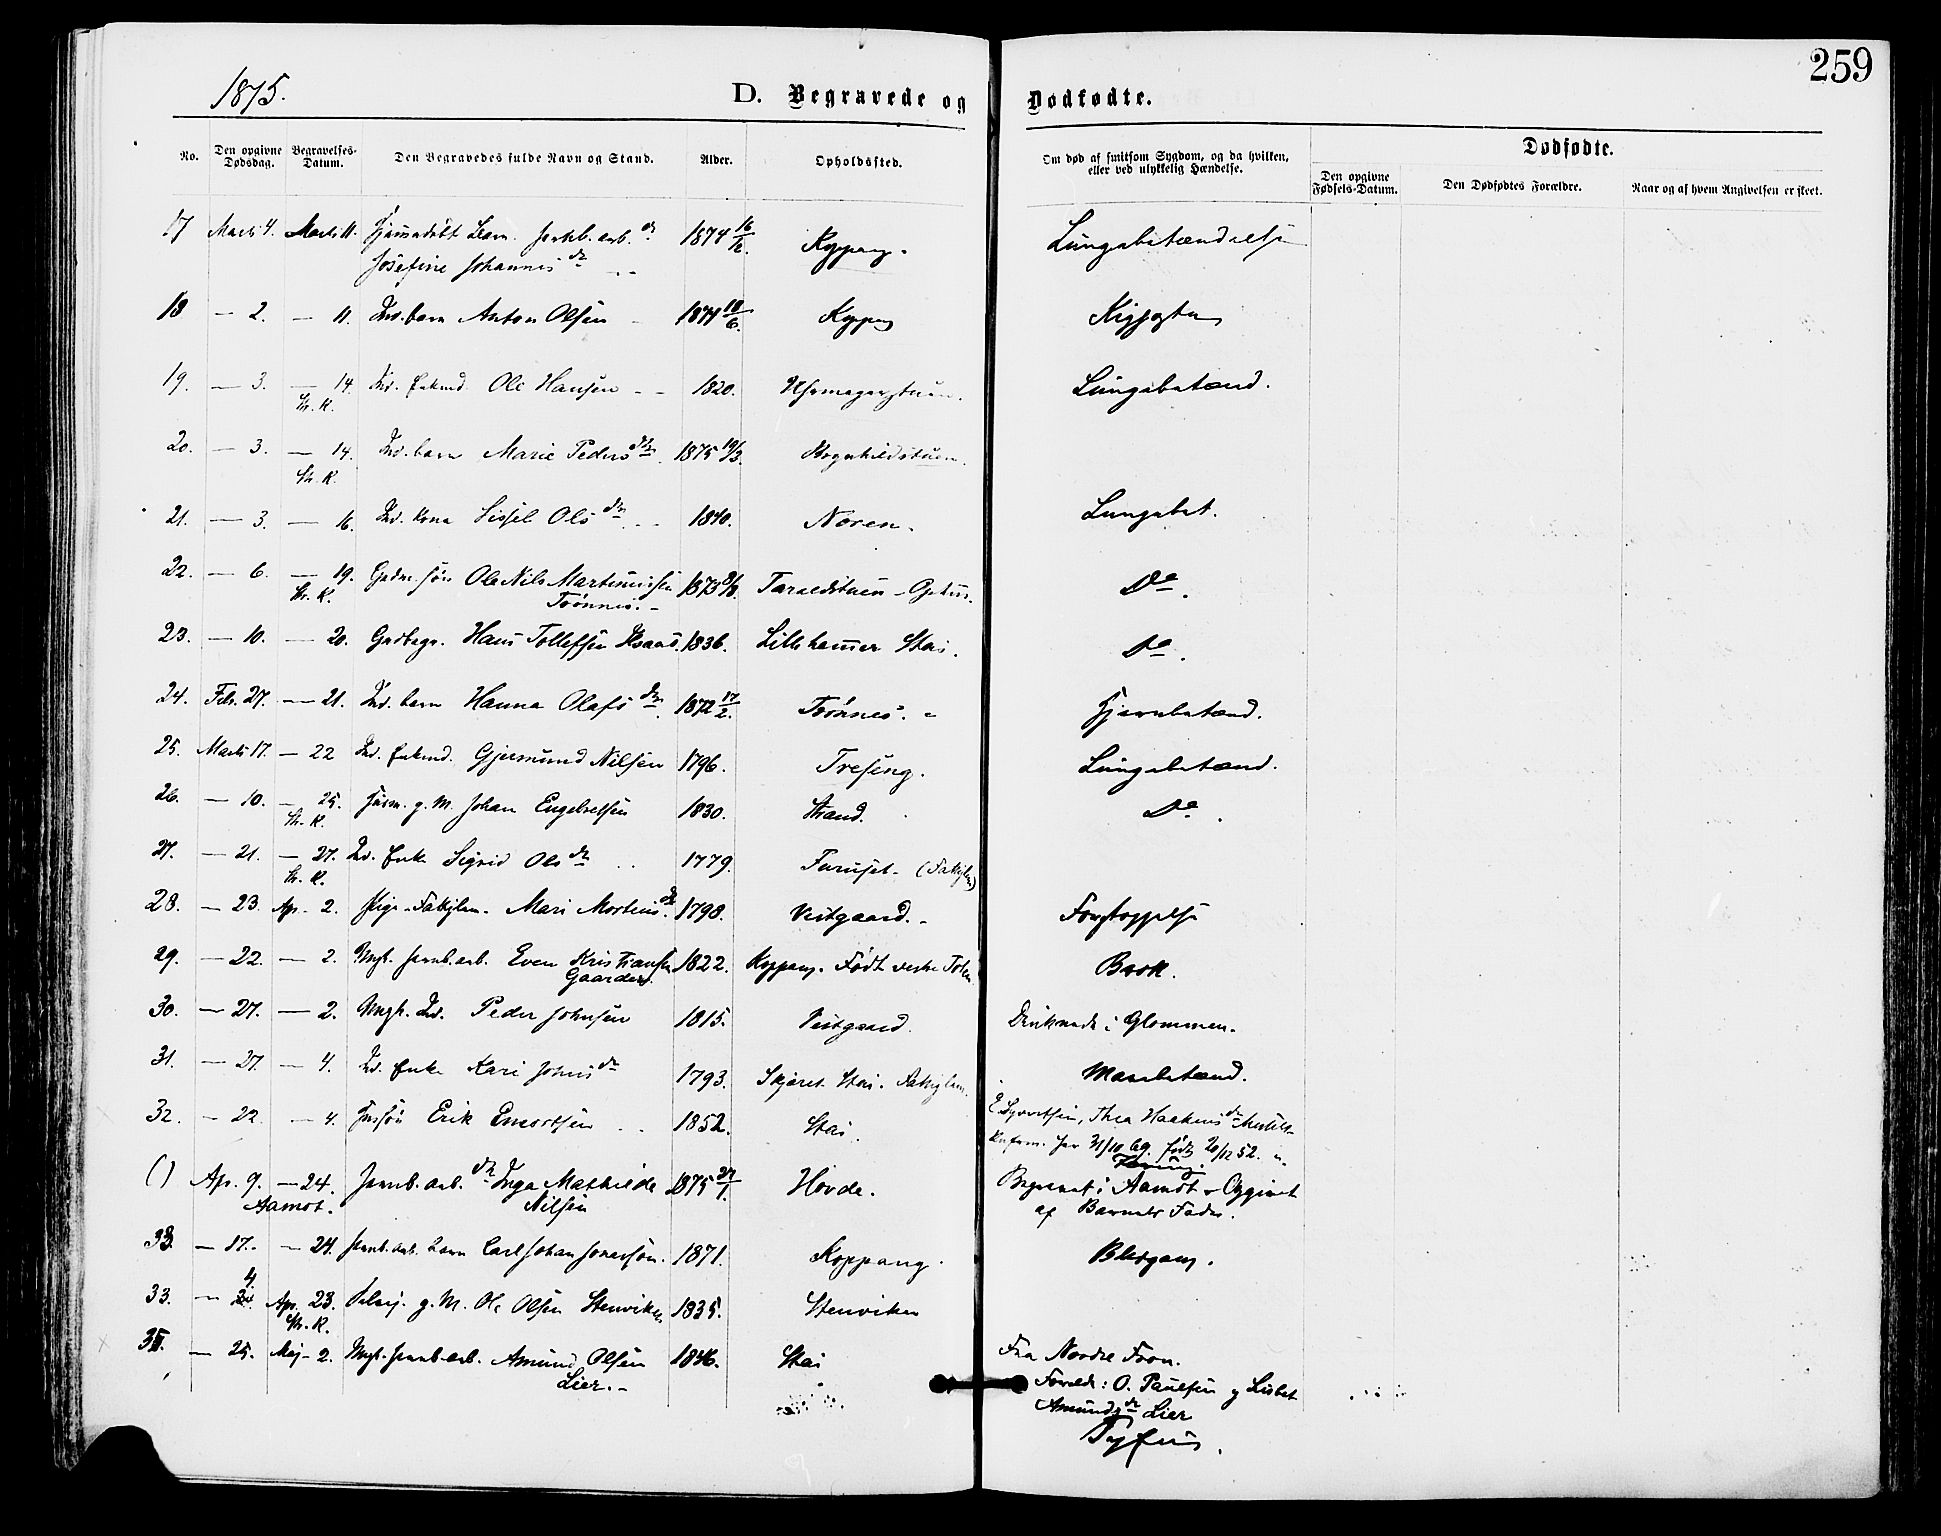 259
1875.
D. Begravede og Dødfødte.
No. Den opgivne Dødsdag. Begravelses-Datum. Den Begravedes fulde Navn og Stand. Alder. Opholdssted. Om død af smitsom Sygdom, og da hvilken, eller ved ulykkelig Hændelse. Dødfødte.
Den opgivne Fødsels-Datum. Den Dødfødtes Forældre. Naar og af hvem Angivelsen er skeet.
17 Marts 4. Marts 11. Jernb. arb. 1874 16/12. Koppang. Lungebetændelse
Josefine Johannes dr
18 — 2. — 11. Ind. barn Anton Olsen 1874 18/6. Koppang Kighoste
19. — 3. — 14. Ind. Enkmd. Ole Hansen 1820. Lungebetænd.
St. K.
20. — 3. — 14. Ind. barn Marie Peders dr 1875 19/3. Rognhildstuen.
St. K.
21. — 3. — 16. Ind. Kona Sissel Ols dr 1840. Noren. Lungebet.
22. — 6. — 19. Grdm. søn Ole Nils Martinussen 1873 Taraldstuen Do.
St. K. Trønnes.
23. — 10. — 20. Grdbrgr. Hans Tollefsen 1836. Lillehammer Stai. Do.
24. Febr. 27. — 21. Ind. barn Hanna Olafs dr 1872 17/2. Trønnes. Hjernbetænd.
25. Marts 17. — 22 Ind. Enkmd. Gjermund Nilsen 1796. Tresing. Lungebetænd.
26. — 10. — 25. Husm. g. M. Johan Engebretsen 1830. Strand. Do.
St. K.
27. — 21. — 27. Ind. Enke Sigrid Ols dr 1779. Furuset (Fattiglem)
St. K.
28. — 23. Apr. 2. Pige. Fattiglem. Mari Mortens dr 1798. Vestgaard. Forstoppelse
29. — 22. — 2. Ungk. Jernb. arb. Even Kristiansen 1822. Koppang. Født vestre Toten Brok.
Gaarder.
30. — 27. — 2. Ungk. Ind. Peder Johnsen 1815. Vestgaard. Druknede i Glommen.
31. — 27. — 4. Ind. Enke Kari Johns dr 1793. Skjæret Stai. Fattiglem. Mavebetænd.
32. — 22. — 4. Erik Emortsen 1852. Stai. E. Syvertsen, Thea Haakens dr
Konfirm. her 31/10 69. født 20/12 52.
() Apr. 9. — 24. Jernb. arb. dr Inga Mathilde 1875 27/1. Hovde. Begravet i Aamot. Opgivet
Aamot. Nilsen af Barnets Fader.
33. — 17. — 24. Jernb. arb. barn Carl Johan 1871. Koppang. Blodgang.
33. — 4. Apr. 23. Selvej. g. M. Ole Olsen Stenviken 1835. Stenviken
St. K.
— 25. Maj 2. Ungk. Jernb. arb. Amund Olsen 1846. Stai Fra Nordre Fron.
Lier. Foreldr: O. Paulsen og Lisbet
Amunds dr Lier
Tyfus.